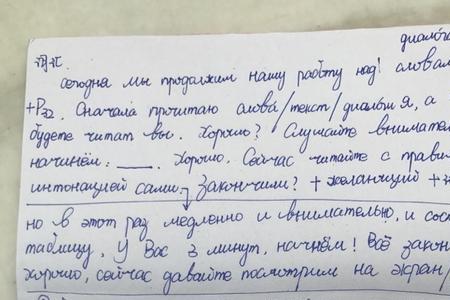 диалога
词汇.
сегодня мы продолжим нашу работу над! словам
+P32. Сначала прочитаю слова/текст/диалог я, а
будете читат вы. Хорошо? Слушайте внимател
начинём: ___. Хорошо. Сейчас читайте с прави
интонацией сами. Закончили? + желающий +
но в этот раз медленно и внимательно, и сос
таблицу. У Вас 3 минут, начнём! Всё закон
хорошо, сейчас давайте посмотрим на экран/